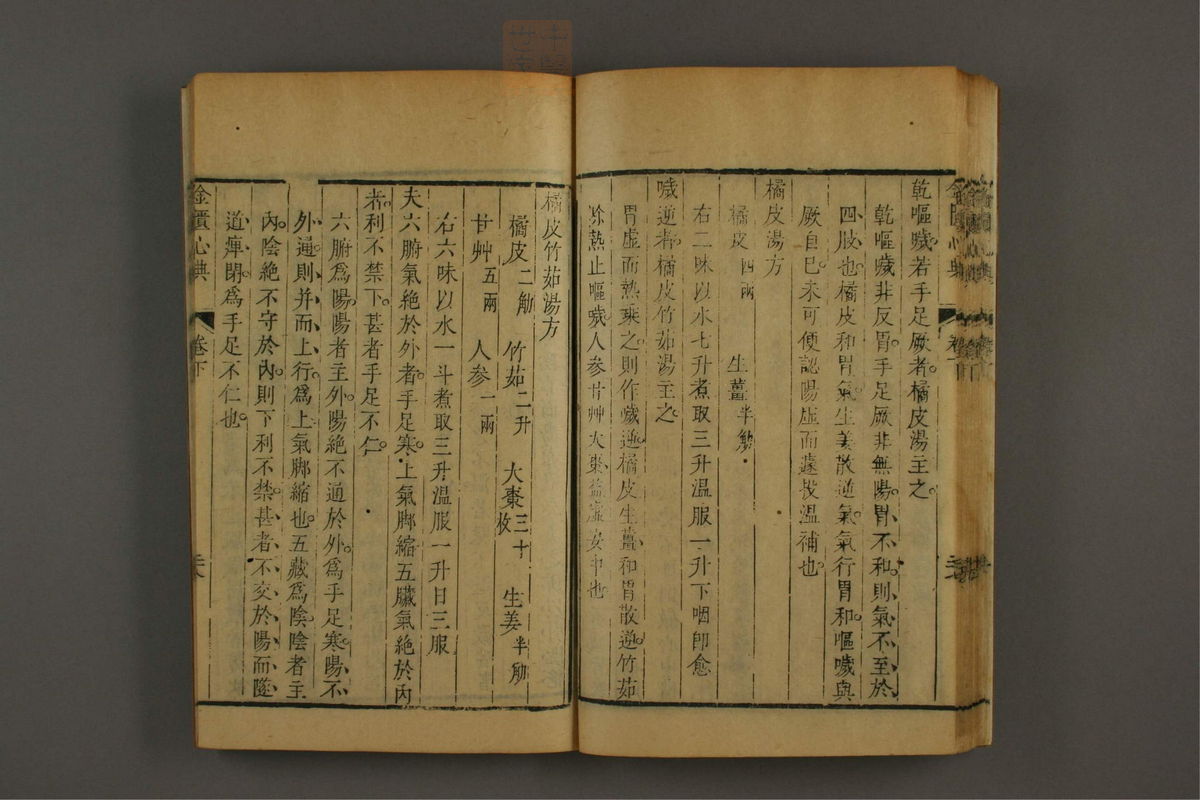 乾嘔噦若手足厥者橘皮湯主之
乾嘔噦非反胃手足厥非無陽胃不和則氣不至於
四肢也橘皮和胃氣生姜散逆氣氣行胃和嘔噦與
厥自已未可便認陽虛而遽投溫補也
橘皮湯方
橘皮四兩 生薑半觔
右二味以水七升煮取三升溫服一升下咽卽愈
噦逆者橘皮竹茹湯主之
胃虛而熱乘之則作噦逆橘皮生薑和胃散逆竹茹
除熱止嘔噦人参甘艸大棗益虛安中也
橘皮竹茹湯方
橘皮二觔 竹茹二升 大棗三十枚 生姜半觔
甘艸五兩 人参一兩
右六味以水一斗煮取三升溫服一升日三服
夫六腑氣絶於外者手足寒上氣脚縮五臟氣絶於內
者利不禁下甚者手足不仁
六腑爲陽陽者主外陽絶不通於外爲手足寒陽不
外通則并而上行爲上氣脚縮也五藏爲陰陰者主
內陰絶不守於內則下利不禁甚者不交於陽而隧
道痺閉爲手足不仁也
金匱心典 卷下